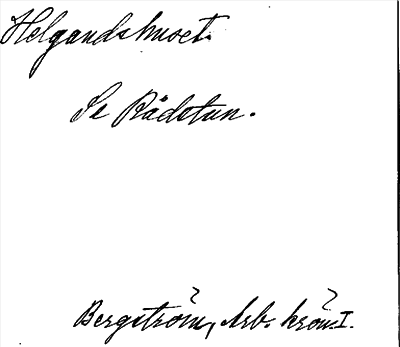 Helgandshuset.
Se Rådstun.
Bergström, Arb. krön. I.